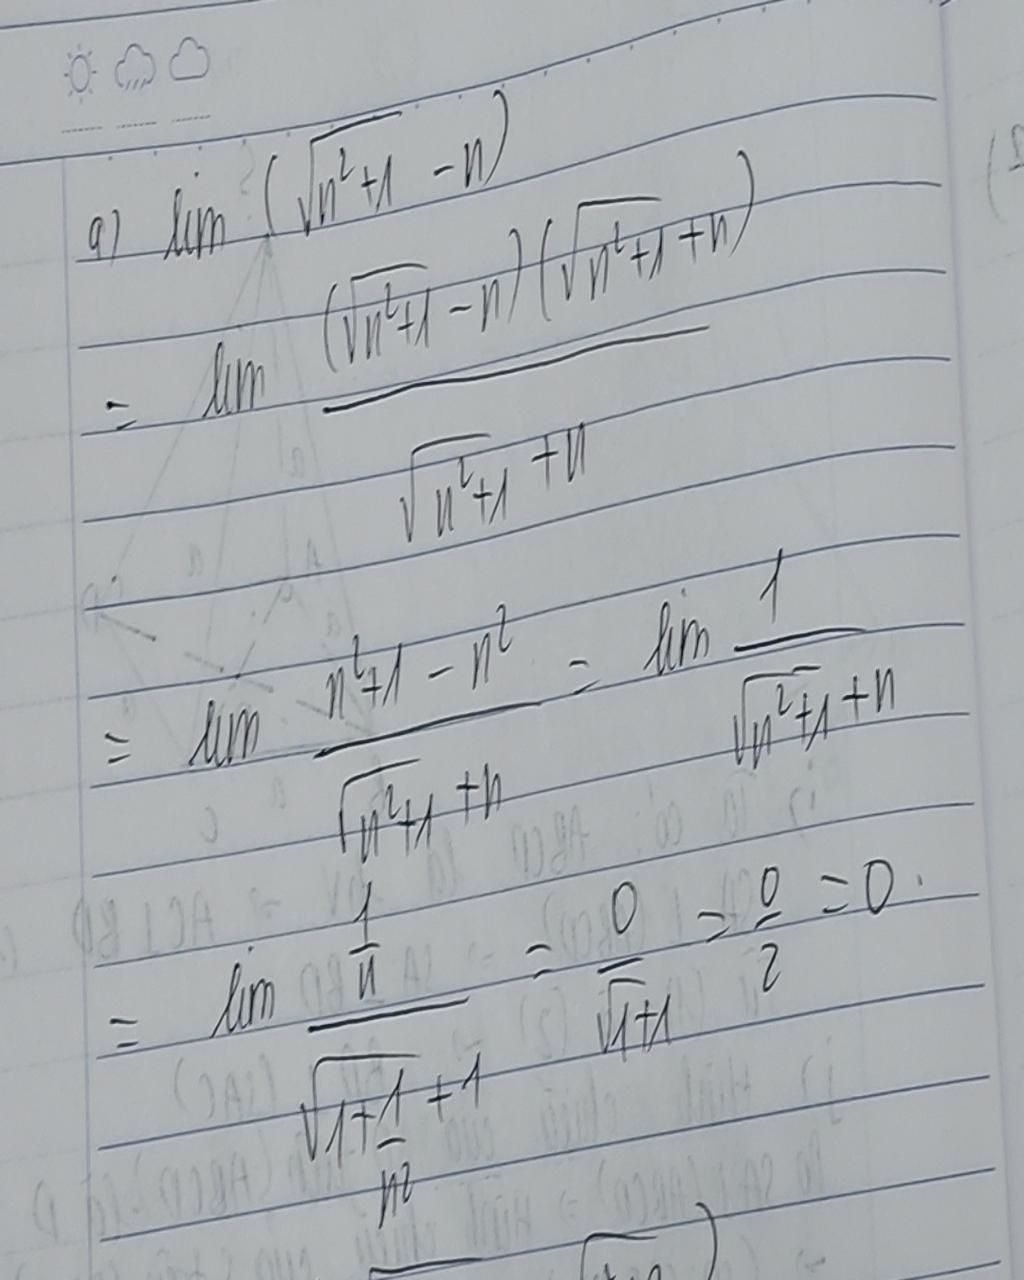 a) lim (√(n²+1) - n)
= lim ((√(n²+1) - n)(√(n²+1) + n))/(√(n²+1) + n)
= lim (n²+1 - n²)/(√(n²+1) + n) = lim 1/(√(n²+1) + n)
= lim (1/n)/(√(1+1/n²) + 1) = 0/(√1+1) = 0/2 = 0.